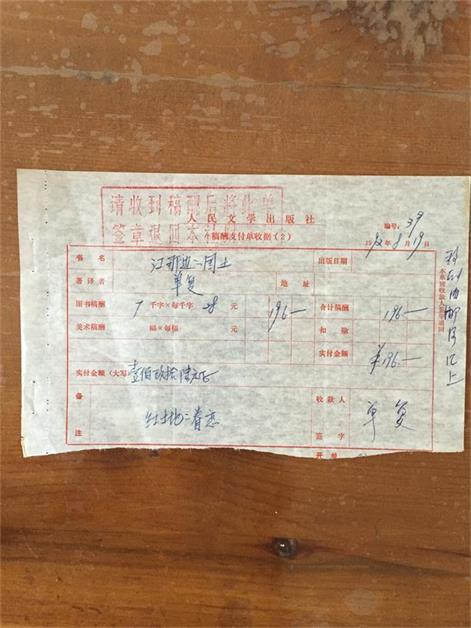 请收到稿酬后将此单
签章退回本社
人民文学出版社
稿酬支付单收据(2)
编号: 39
1992年8月19日
书名
江那边一国土
出版日期
著译者
单复
地址
图书稿酬 7 千字×每千字 28 元 196—
合计稿酬 196—
美术稿酬 幅×每幅
扣除
实付金额 ¥196—
实付金额(大写) 壹佰玖拾陆元正
备注
红土地之眷恋
收款人签字
单复
本单请收款人签章退回